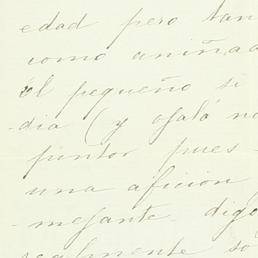 edad pero tan
como aniñad
él pequeño si
dia (y ojalá no
puntor pues
una aficion
mejante digo
realmente so